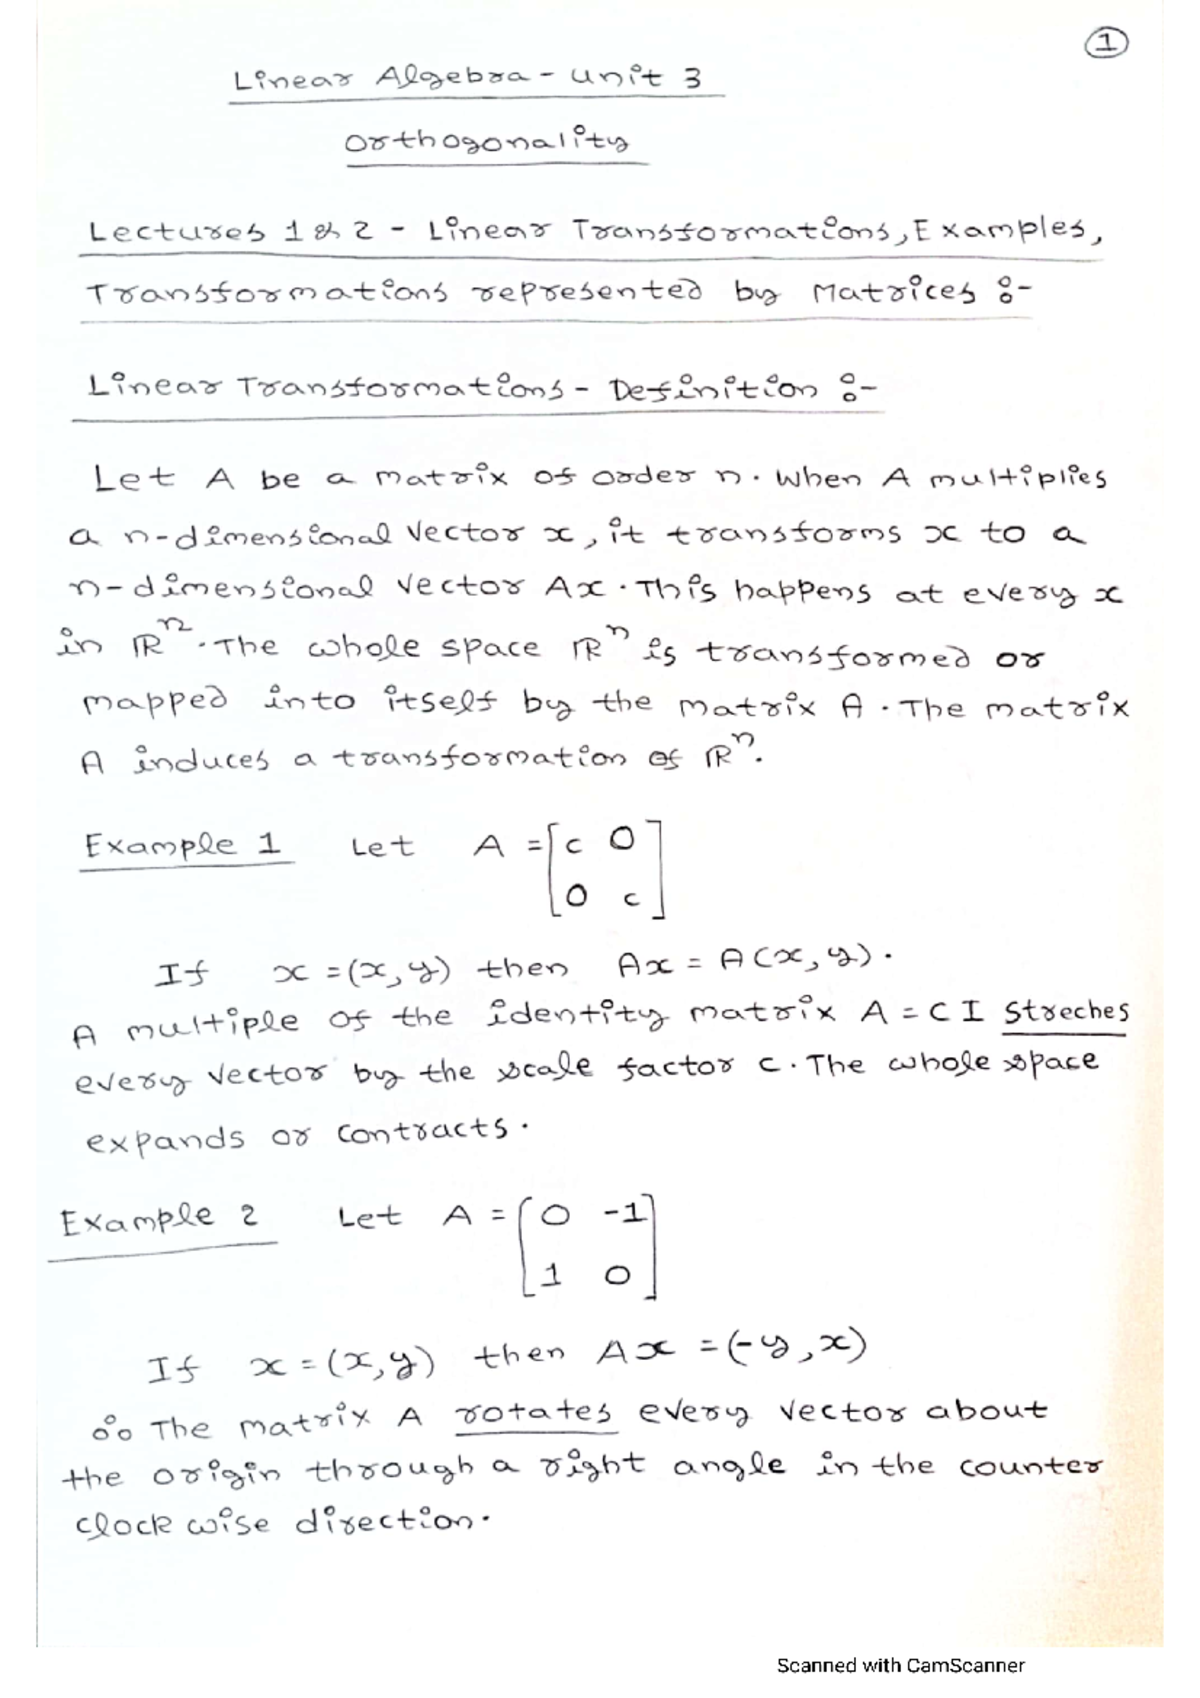 1
Linear Algebra - Unit 3
Orthogonality
Lectures 1 & 2 - Linear Transformations, Examples,
Transformations represented by Matrices :-
Linear Transformations - Definition :-
Let A be a matrix of order n. When A multiplies
a n-dimensional vector x, it transforms x to a
n-dimensional vector Ax. This happens at every x
in ℝⁿ. The whole space ℝⁿ is transformed or
mapped into itself by the matrix A. The matrix
A induces a transformation of ℝⁿ.
Example 1 Let A = [c 0
0 c]
If x = (x, y) then Ax = A(x, y).
A multiple of the identity matrix A = CI streches
every vector by the scale factor c. The whole space
expands or contracts.
Example 2 Let A = [0 -1
1 0]
If x = (x, y) then Ax = (-y, x)
∴ The matrix A rotates every vector about
the origin through a right angle in the counter
clock wise direction.
Scanned with CamScanner